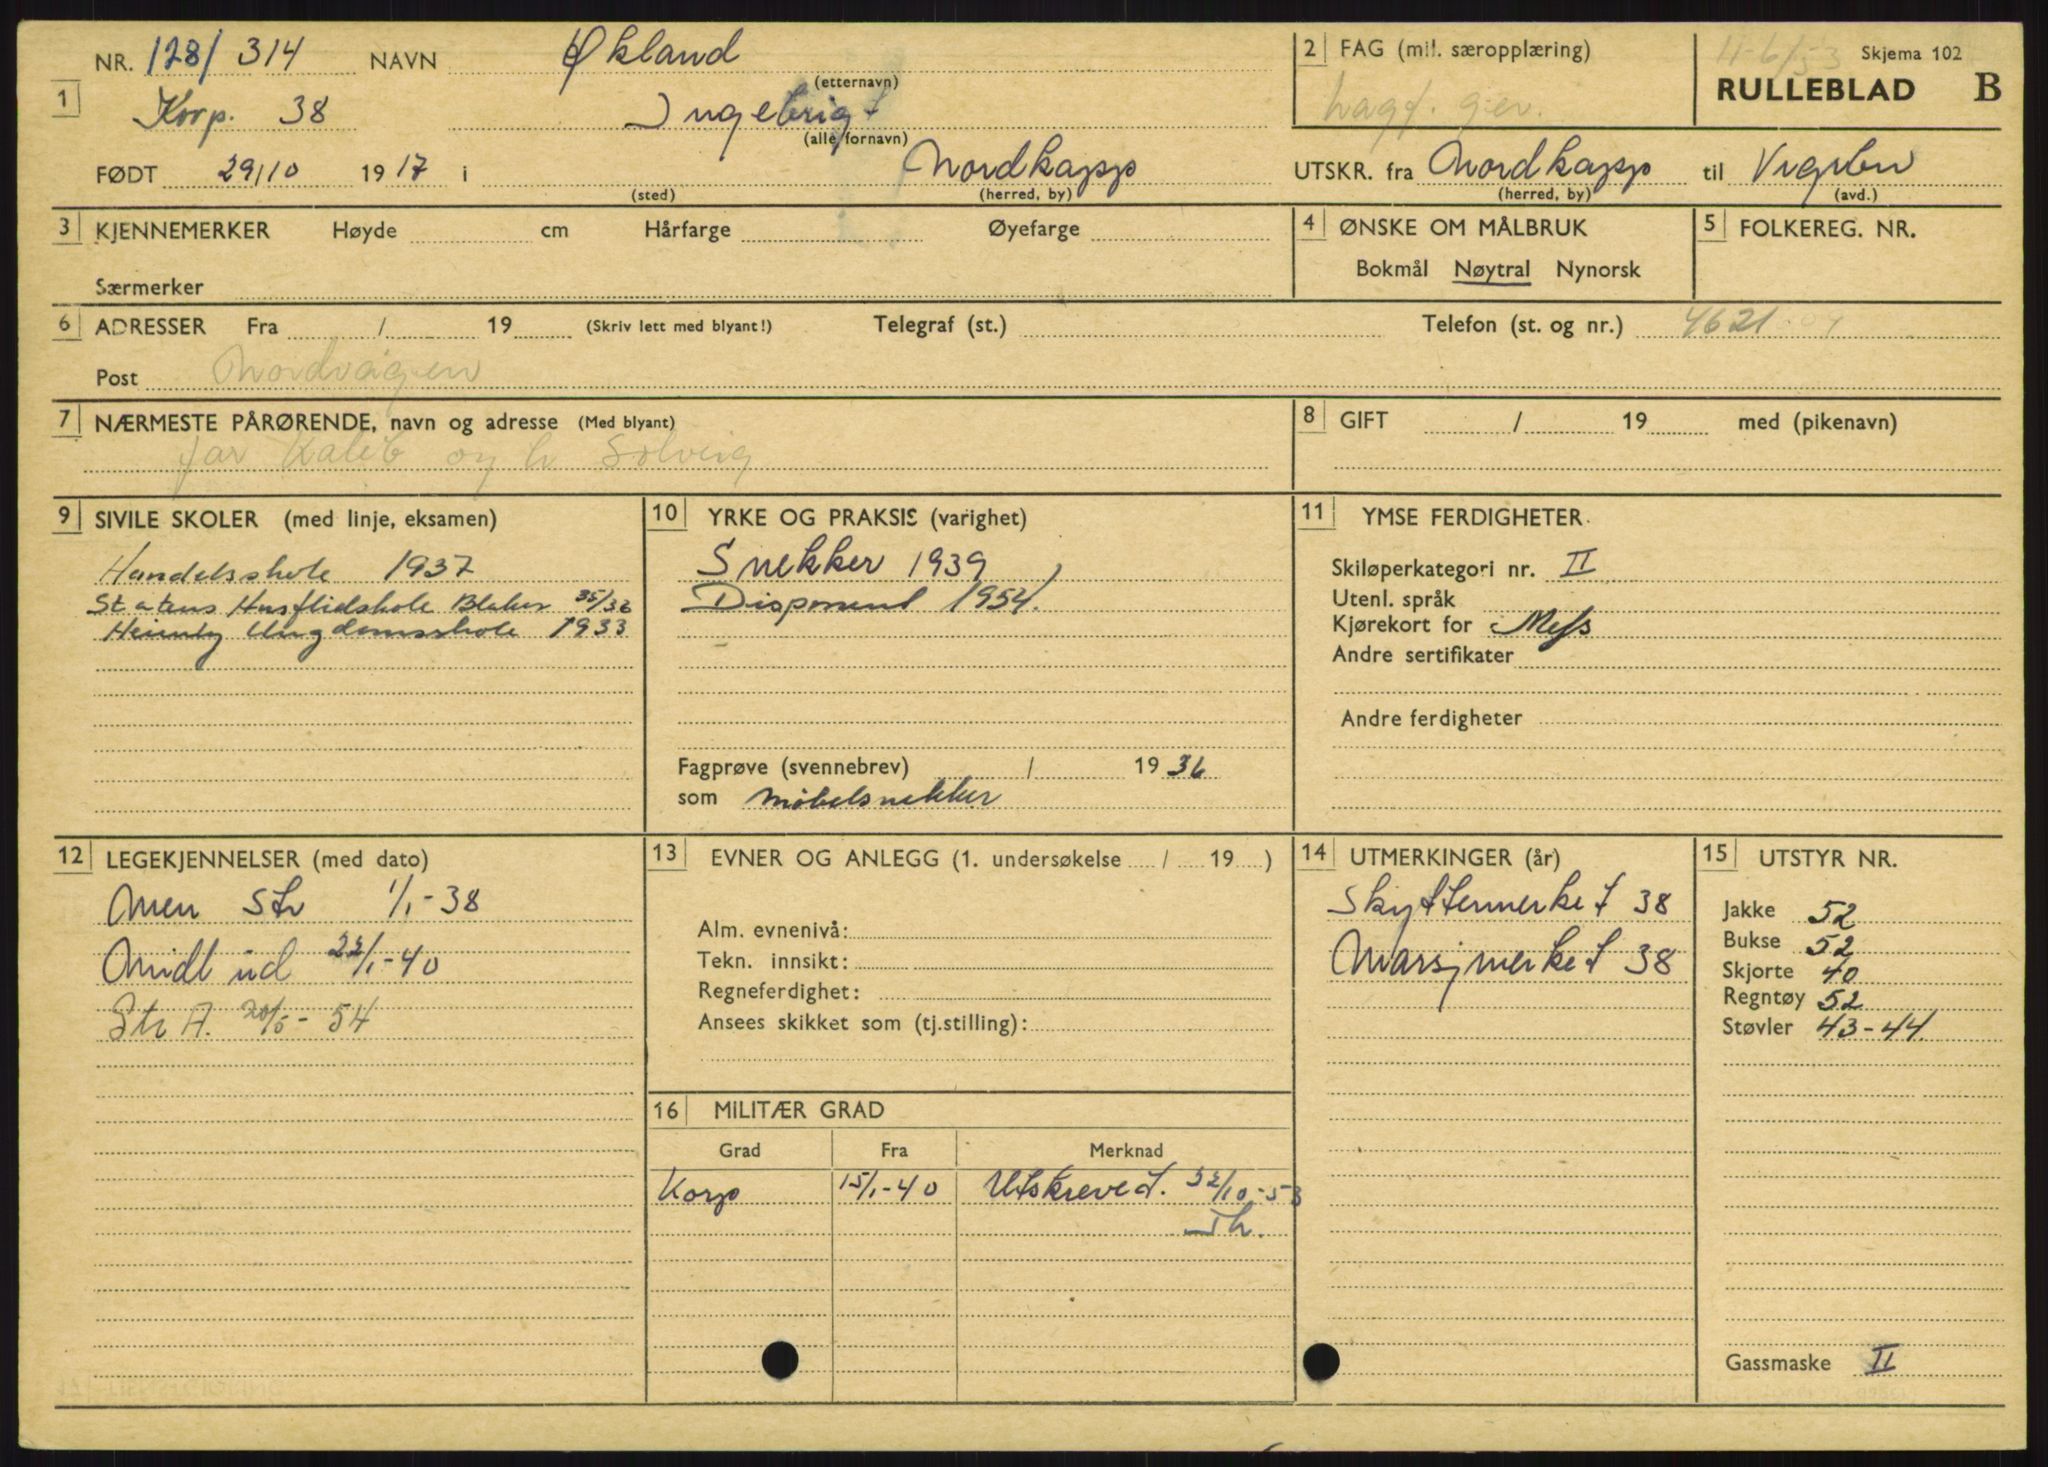 NR. 128/314 NAVN Økland (etternavn)
1 Korp. 38 Ingebrigt (alle fornavn)
FØDT 29/10 1917 i (sted) Nordkapp (herred, by)
2 FAG (mil. særopplæring)
Lagf. gev.
4-6/53 Skjema 102
RULLEBLAD B
UTSKR. fra Nordkapp (herred, by) til (avd.)
3 KJENNEMERKER Høyde cm Hårfarge Øyefarge
Særmerker
4 ØNSKE OM MÅLBRUK
Bokmål Nøytral Nynorsk
5 FOLKEREG. NR.
6 ADRESSER Fra / 19 (Skriv lett med blyant!) Telegraf (st.) Telefon (st. og nr.) 4621
Post Nordvågen
7 NÆRMESTE PÅRØRENDE, navn og adresse (Med blyant)
far Kaleb og h Solveig
8 GIFT / 19 med (pikenavn)
9 SIVILE SKOLER (med linje, eksamen)
Handelsskole 1937
Statens Husflidskole Blaker 35/36
Heimly Ungdomsskole 1933
10 YRKE OG PRAKSIS (varighet)
Snekker 1939
Disponent 1954.
Fagprøve (svennebrev) / 1936
som Møbelsnekker
11 YMSE FERDIGHETER
Skiløperkategori nr. II
Utenl. språk
Kjørekort for
Andre sertifikater
Andre ferdigheter
12 LEGEKJENNELSER (med dato)
Men Str 1/1-38
Midl ud 22/1-40
Str A. 20/5-54
13 EVNER OG ANLEGG (1. undersøkelse / 19 )
Alm. evnenivå:
Tekn. innsikt:
Regneferdighet:
Ansees skikket som (tj.stilling):
14 UTMERKINGER (år)
Skyttermerket 38
Marsjmerket 38
15 UTSTYR NR.
Jakke 52
Bukse 52
Skjorte 40
Regntøy 52
Støvler 43-44.
Gassmaske II
16 MILITÆR GRAD
Grad Fra Merknad
Korp 15/1-40 Utskreved. 22/10-53
Th.